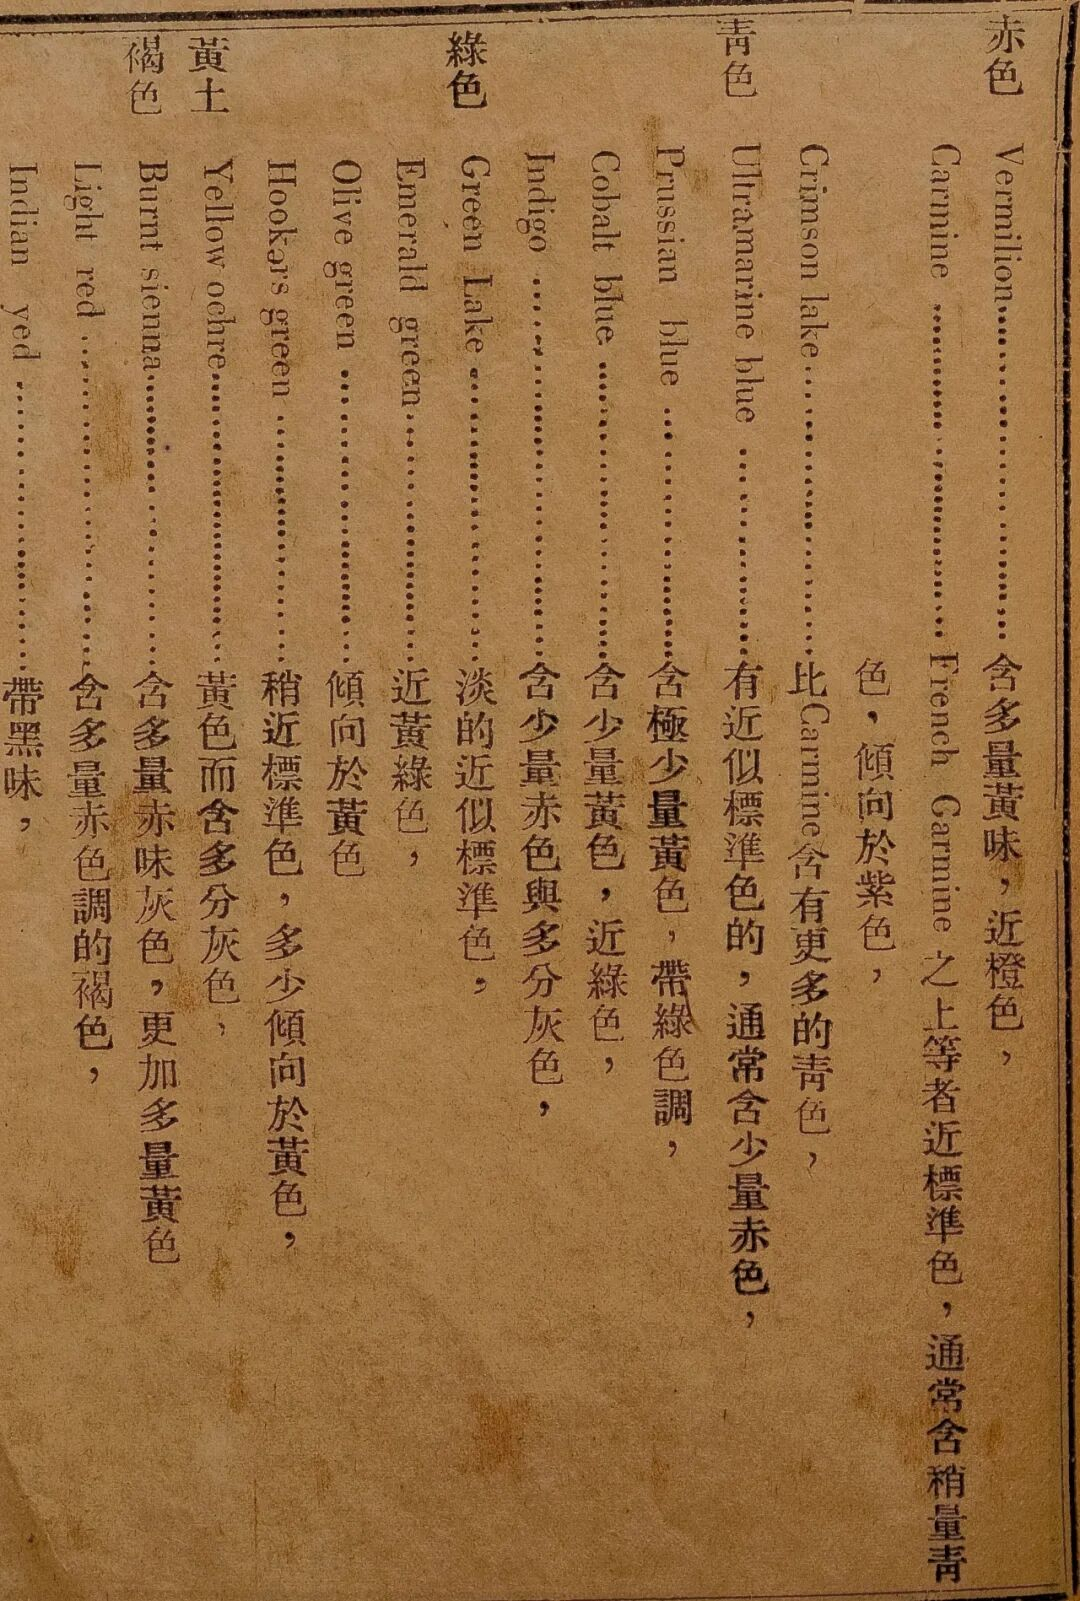 赤色 Vermilion........................含多量黃味，近橙色，
Carmine........................French Carmine之上等者近標準色，通常含稍量靑
色，傾向於紫色，
Crimson lake........................比Carmine含有更多的靑色，
靑色 Ultramarine blue........................有近似標準色的，通常含少量赤色，
Prussian blue........................含極少量黃色，帶綠色調，
Cobalt blue........................含少量黃色，近綠色，
Indigo........................含少量赤色與多分灰色，
綠色 Green Lake........................淡的近似標準色，
Emerald green........................近黃綠色，
Olive green........................傾向於黃色
Hookers green........................稍近標準色，多少傾向於黃色，
黃土 Yellow ochre........................黃色而含多分灰色，
褐色 Burnt sienna........................含多量赤味灰色，更加多量黃色
Light red........................含多量赤色調的褐色，
Indian yed........................帶黑味，